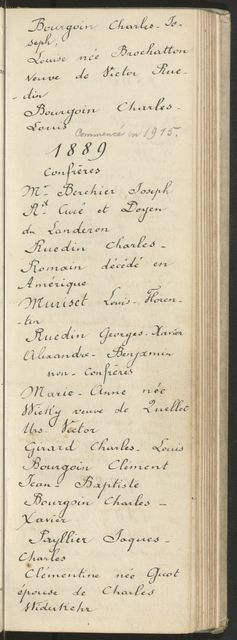 Bourgoin Charles-Jo-
seph,
Louise née Brochatton
veuve de Victor Rue-
din
Bourgoin Charles-
Louis
Commencé en 1915.
1889
Confrères
Mr. Berchier Joseph
Rd. Curé et Doyen
du Landeron
Ruedin Charles-
Romain décédé en
Amérique
Muriset Louis-Floren-
tin
Ruedin Georges-Xavier
Alexandre-Benjamin
non-Confrères
Marie-Anne née
Wicky veuve de Quellet
Urs Victor
Girard Charles-Louis
Bourgoin Clément
Jean-Baptiste
Bourgoin Charles-
Xavier
Payllier Jaques-
Charles
Clémentine née Quot
épouse de Charles
Widukehr